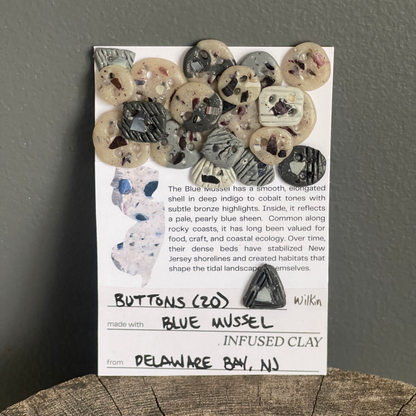 The Blue Mussel has a smooth, elongated
shell in deep indigo to cobalt tones with
subtle bronze highlights. Inside, it reflects
a pale, pearly blue sheen. Common along
rocky coasts, it has long been valued for
food, craft, and coastal ecology. Over time,
their dense beds have stabilized New
Jersey shorelines and created habitats that
shape the tidal landscape themselves.
BUTTONS (20) Wilkin
made with BLUE MUSSEL
INFUSED CLAY
from DELAWARE BAY, NJ